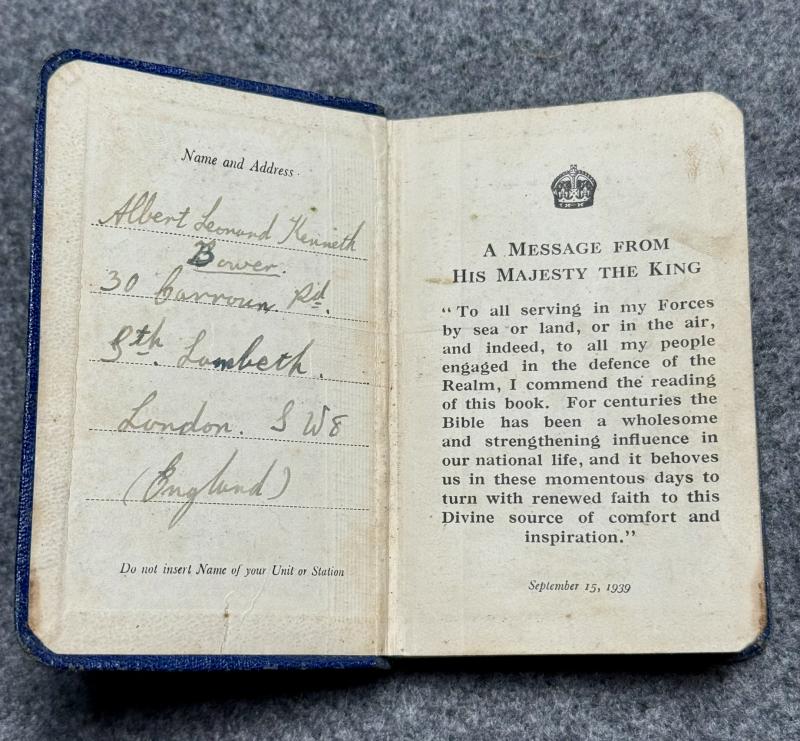 Name and Address
Albert Leonard Kenneth
Bower.
30 Carroun Rd.
Sth. Lambeth.
London. S W 8
(England)
Do not insert Name of your Unit or Station
A MESSAGE FROM
HIS MAJESTY THE KING
“To all serving in my Forces
by sea or land, or in the air,
and indeed, to all my people
engaged in the defence of the
Realm, I commend the reading
of this book. For centuries the
Bible has been a wholesome
and strengthening influence in
our national life, and it behoves
us in these momentous days to
turn with renewed faith to this
Divine source of comfort and
inspiration.”
September 15, 1939